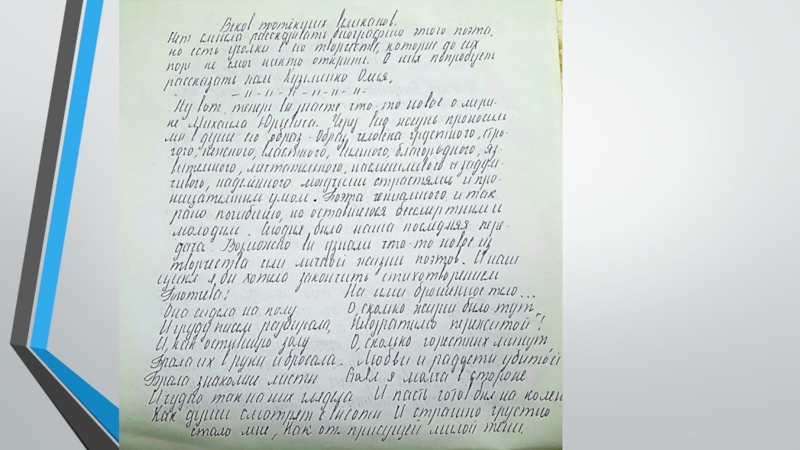 Веков протекших великанов.
Нет смысла рассказывать биографию этого поэта,
но есть уголки в его творчестве, которые до сих
пор не смог никто открыть. О них попробует
рассказать нам Кузьменко Олеся.
– " – " – " – " – " – " –
Ну вот теперь вы знаете что-то новое о лири-
ке Михаила Юрьевича. Через всю жизнь проносим
мы в душе его образ - образ человека грустного, стро-
гого, нежного, властного, благородного, яз-
вительного, мечтательного, насмешливого и задум-
чивого, наделенного могучими страстями и про-
ницательным умом. Поэта гениального и так
рано погибшего, но оставшегося бессмертным и
молодым. Сегодня была наша последняя пере-
дача. Возможно вы узнали что-то новое из
творчества или личной жизни поэтов. И наш
цикл я бы хотела закончить стихотворением
Тютчева:
Она сидела на полу
И груду писем разбирала,
И, как остывшую золу
Брала их в руки и бросала.
Брала знакомые листы
И чудно так на них глядела
Как души смотрят с высоты
На ими брошенное тело...
О, сколько жизни было тут,
Невозвратимо пережитой!
О, сколько горестных минут,
Любви и радости убитой
Стоял я молча в стороне
И пасть готов был на колен
И страшно грустно
стало мне, как от присущей милой тени.